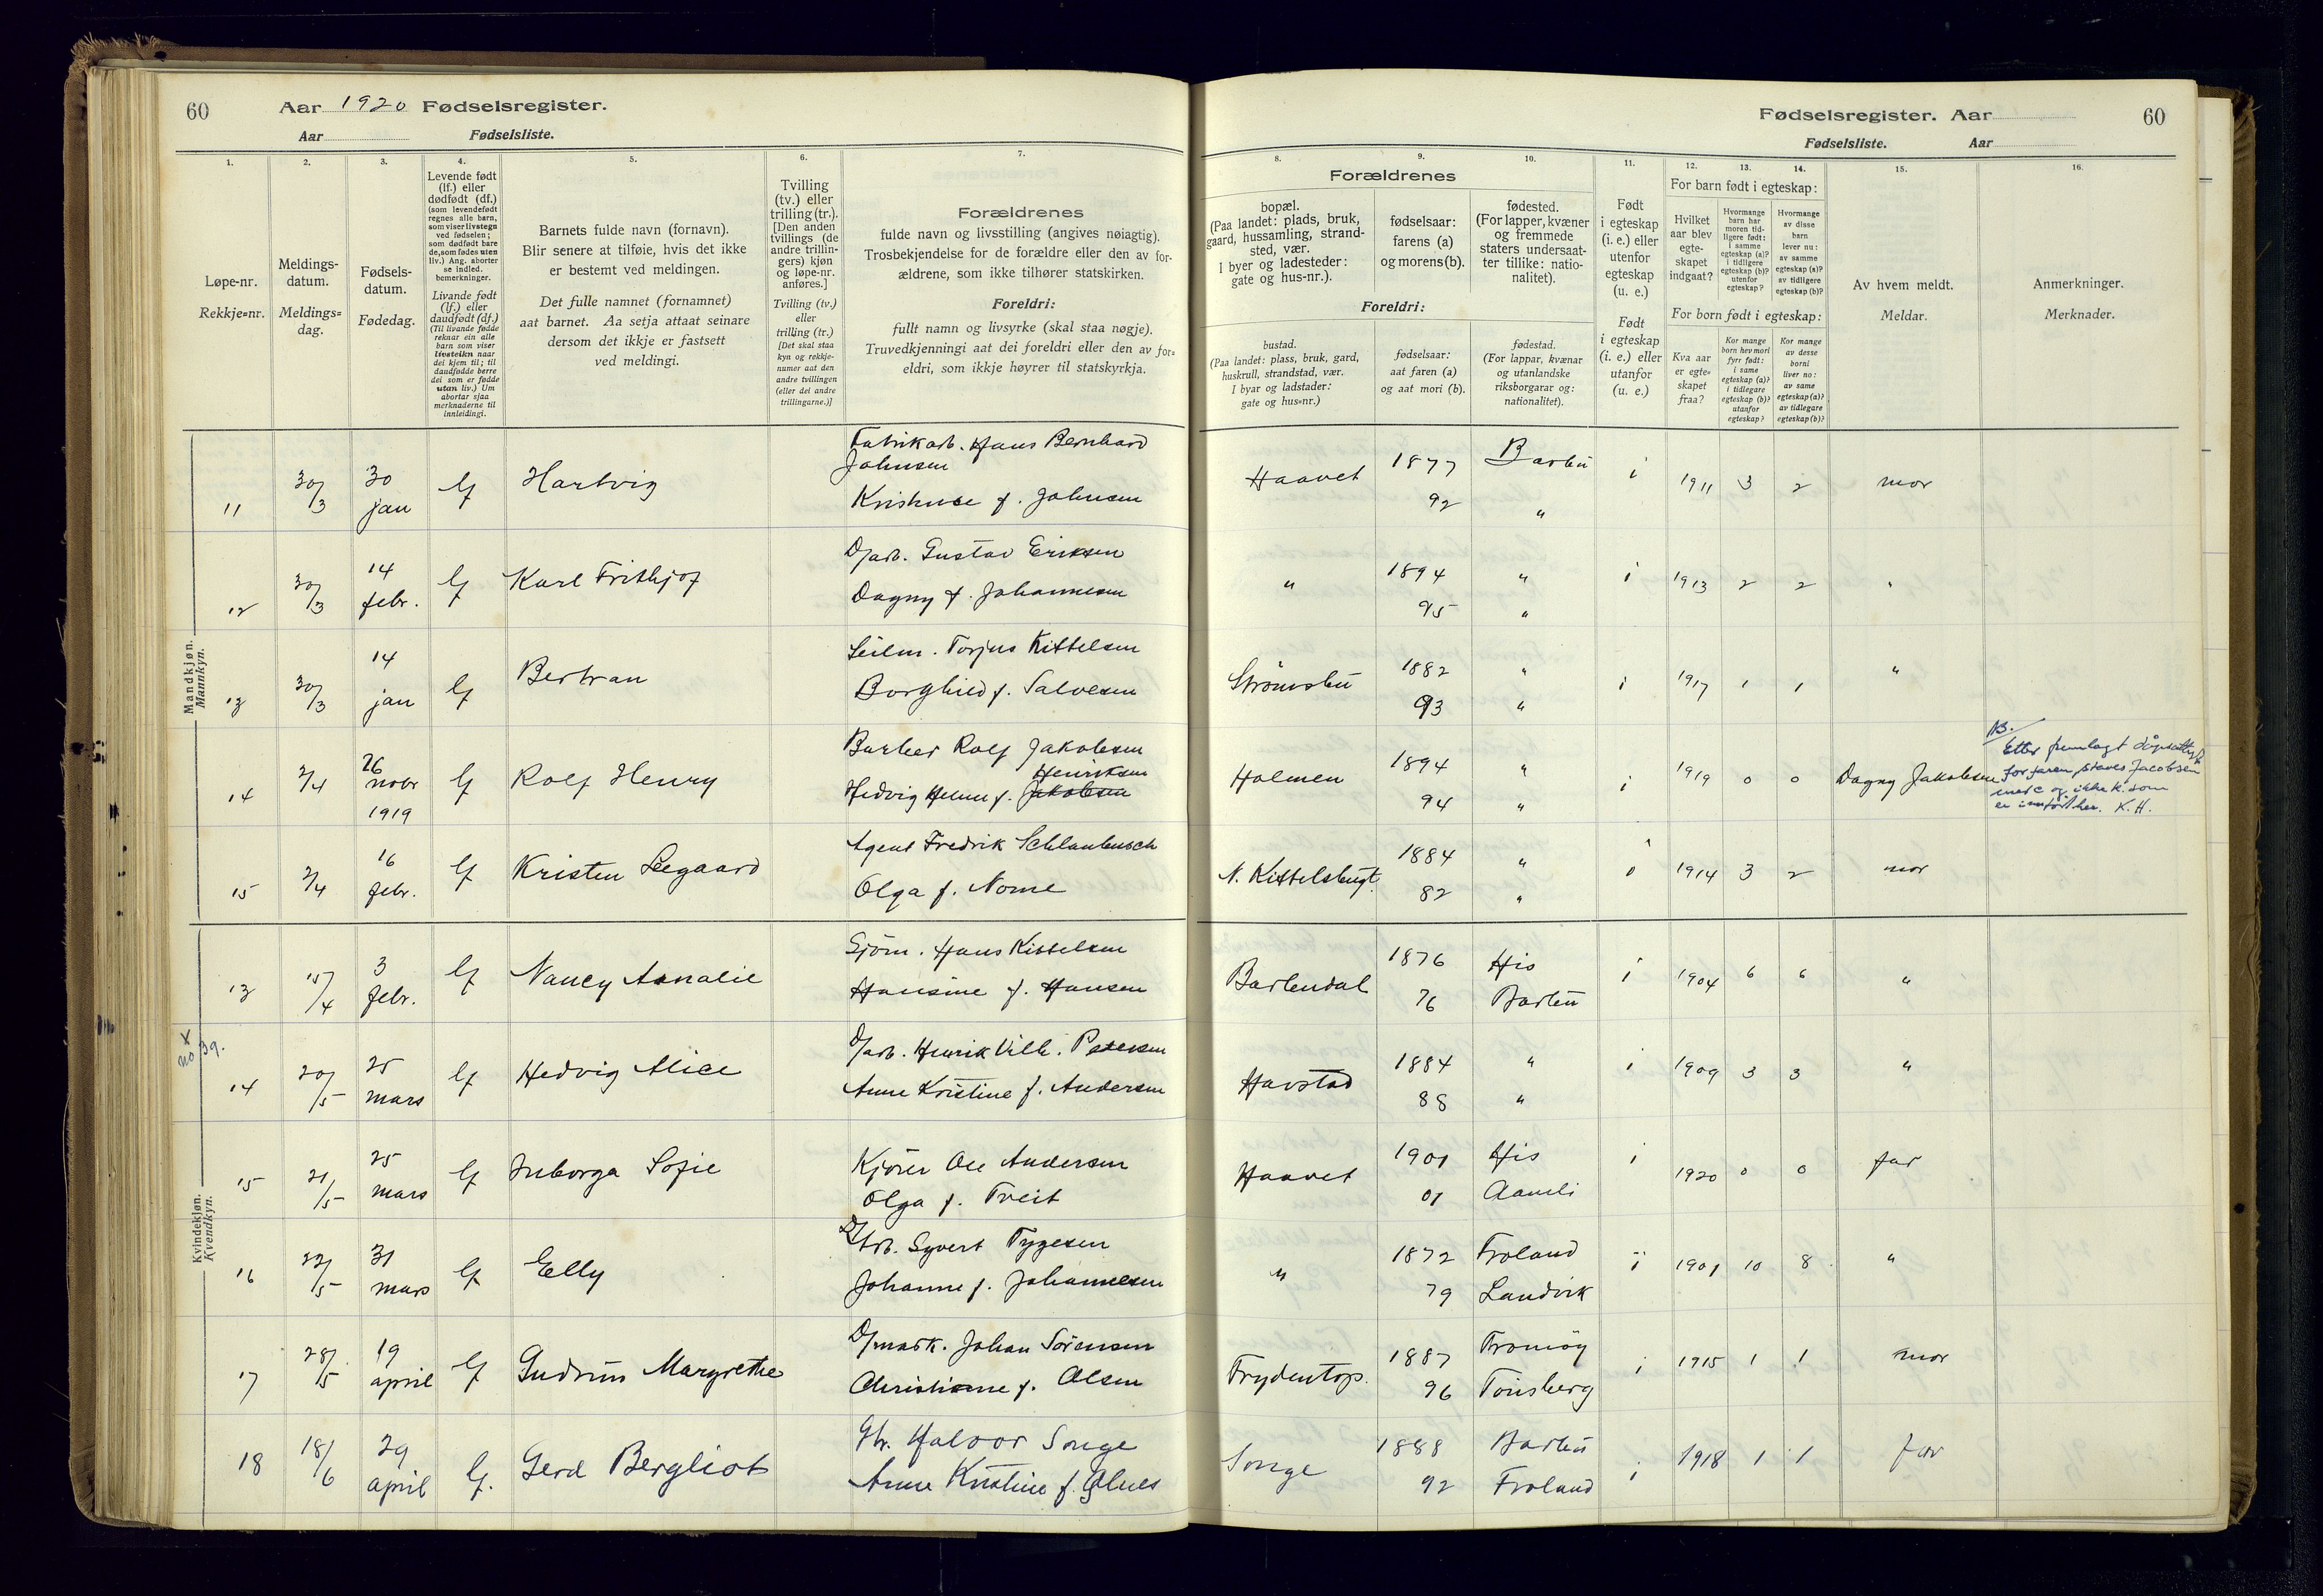 60 Aar 1920 Fødselsregister.
Aar Fødselsliste.
Fødselsregister. Aar 60
Fødselsliste. Aar
1. Løpe-nr. Rekkje=nr.
2. Meldings-datum. Meldings=dag.
3. Fødsels-datum. Fødedag.
4. Levende født (lf.) eller dødfødt (df.) (som levendefødt regnes alle barn, som viser livstegn ved fødselen; som dødfødt bare de, som fødes uten liv.) Ang. aborter se indled. bemerkninger.
Livande født (lf.) eller daudfødt (df.) (Til livande fødde reknar ein alle barn som viser livsteikn naar dei kjem til; til daudfødde berre dei som er fødde utan liv.) Um abortar sjaa merknaderne til innleidingi.
5. Barnets fulde navn (fornavn).
Blir senere at tilføie, hvis det ikke
er bestemt ved meldingen.
Det fulle namnet (fornamnet)
aat barnet. Aa setja attaat seinare
dersom det ikkje er fastsett
ved meldingi.
6. Tvilling (tv.) eller trilling (tr.). [Den anden tvillings (de andre trillingers) kjøn og løpe-nr. anføres.]
Tvilling (tv.) eller trilling (tr.) [Det skal staa kyn og rekkje-numer aat den andre tvillingen (eller dei andre trillingarne.)]
7. Forældrenes
fulde navn og livsstilling (angives nøiagtig).
Trosbekjendelse for de forældre eller den av for-
ældrene, som ikke tilhører statskirken.
Foreldri:
fullt namn og livsyrke (skal staa nøgje).
Truvedkjenningi aat dei foreldri eller den av for=
eldri, som ikkje høyrer til statskyrkja.
Forældrenes
8. bopæl. (Paa landet: plads, bruk, gaard, hussamling, strandsted, vær. I byer og ladesteder: gate og hus-nr.).
9. fødselsaar: farens (a) og morens (b).
10. fødested. (For lapper, kvæner og fremmede staters undersaatter tillike: nationalitet).
Foreldri:
bustad. (Paa landet: plass, bruk, gard, huskrull, strandstad, vær. I byar og ladstader: gate og hus=nr.)
fødselsaar: aat faren (a) og aat mori (b).
fødestad. (For lappar, kvænar og utanlandske riksborgarar og: nationalitet).
11. Født i egteskap (i. e.) eller utenfor egteskap (u. e.)
Født i egteskap (i. e.) eller utanfor egteskap (u. e.)
For barn født i egteskap:
12. Hvilket aar blev egteskapet indgaat?
13. Hvormange barn har moren tidligere født: i samme egteskap (a)? i tidligere egteskap (b)? utenfor egteskap?
14. Hvormange av disse barn lever nu: av samme egteskap (a)? av tidligere egteskap (b)?
For born født i egteskap:
Kva aar er egteskapet fraa?
Kor mange born hev mori fyrr født: i same egteskap (a)? i tidlegare egteskap (b)? utanfor egteskap?
Kor mange av desse borni liver no: av same egteskap (a)? av tidlegare egteskap (b)?
15. Av hvem meldt. Meldar.
16. Anmerkninger. Merknader.
Mandkjøn. Mannkyn.
11 30/3 30 jan lf Hartvig Fabrikarb. Hans Bernhard Johnsen Haavet 1877 Barbu i 1911 3 2 mor
f. Johnsen 92 "
12 30/3 14 febr. lf Karl Frithjof D/arb. Gustav Eriksen " 1894 " i 1913 2 2 "
Dagny f. Johannesen 95 "
13 30/3 14 jan lf Bertran Seilm. Torjus Kittelsen Strømsbu 1882 " i 1917 1 1 "
Borghild f. Salvesen 93 "
14 2/4 26 nobr 1919 lf Rolf Henry Barber Rolf Jakobsen Holmen 1894 " i 1919 0 0 Dagny Jakobsen
Hedvig Helene f. Jakobsen Henriksen 94 "
NB.
Etter fremlagt dåpsattest
for faren staves Jacobsen
med c og ikke k. som
er innført her. K. H.
15 2/4 16 febr. lf Kristen Seegaard Agent Fredrik Schlanbusch N. Kittelsbugt. 1884 " i 1914 3 2 mor
Olga f. Nome 82 "
Kvindekjøn. Kvendkyn.
13 15/4 3 febr. lf Nancy Annalie Sjøm. Hans Kittelsen Barbudal 1876 His i 1904 6 6 "
Hansine f. Hansen 76 Barbu
x
no 39.
14 20/5 25 mars lf Hedvig Alice D/arb. Henrik Vilh. Petersen Havstad 1884 " i 1909 3 3 "
Anne Kristine f. Andersen 88 "
15 21/5 25 mars lf Inborga Sofie Kjører Ole Andersen Haavet 1901 His i 1920 0 0 far
Olga f. Tveit 01 Aamli
16 22/5 31 mars lf Elly D/arb. Syvert Tygesen " 1872 Froland i 1901 10 8 "
Johanne f. Johannesen 79 Landvik
17 28/5 19 april lf Gudrun Margrethe D/mask. Johan Sørensen Frydentop. 1887 Tromøy i 1915 1 1 mor
Christianne f. Olsen 96 Tønsberg
18 18/6 29 april lf. Gerd Bergliot Gbr. Halvor Songe Songe 1888 Barbu i 1918 1 1 far
Anne Kristine f. 92 Froland